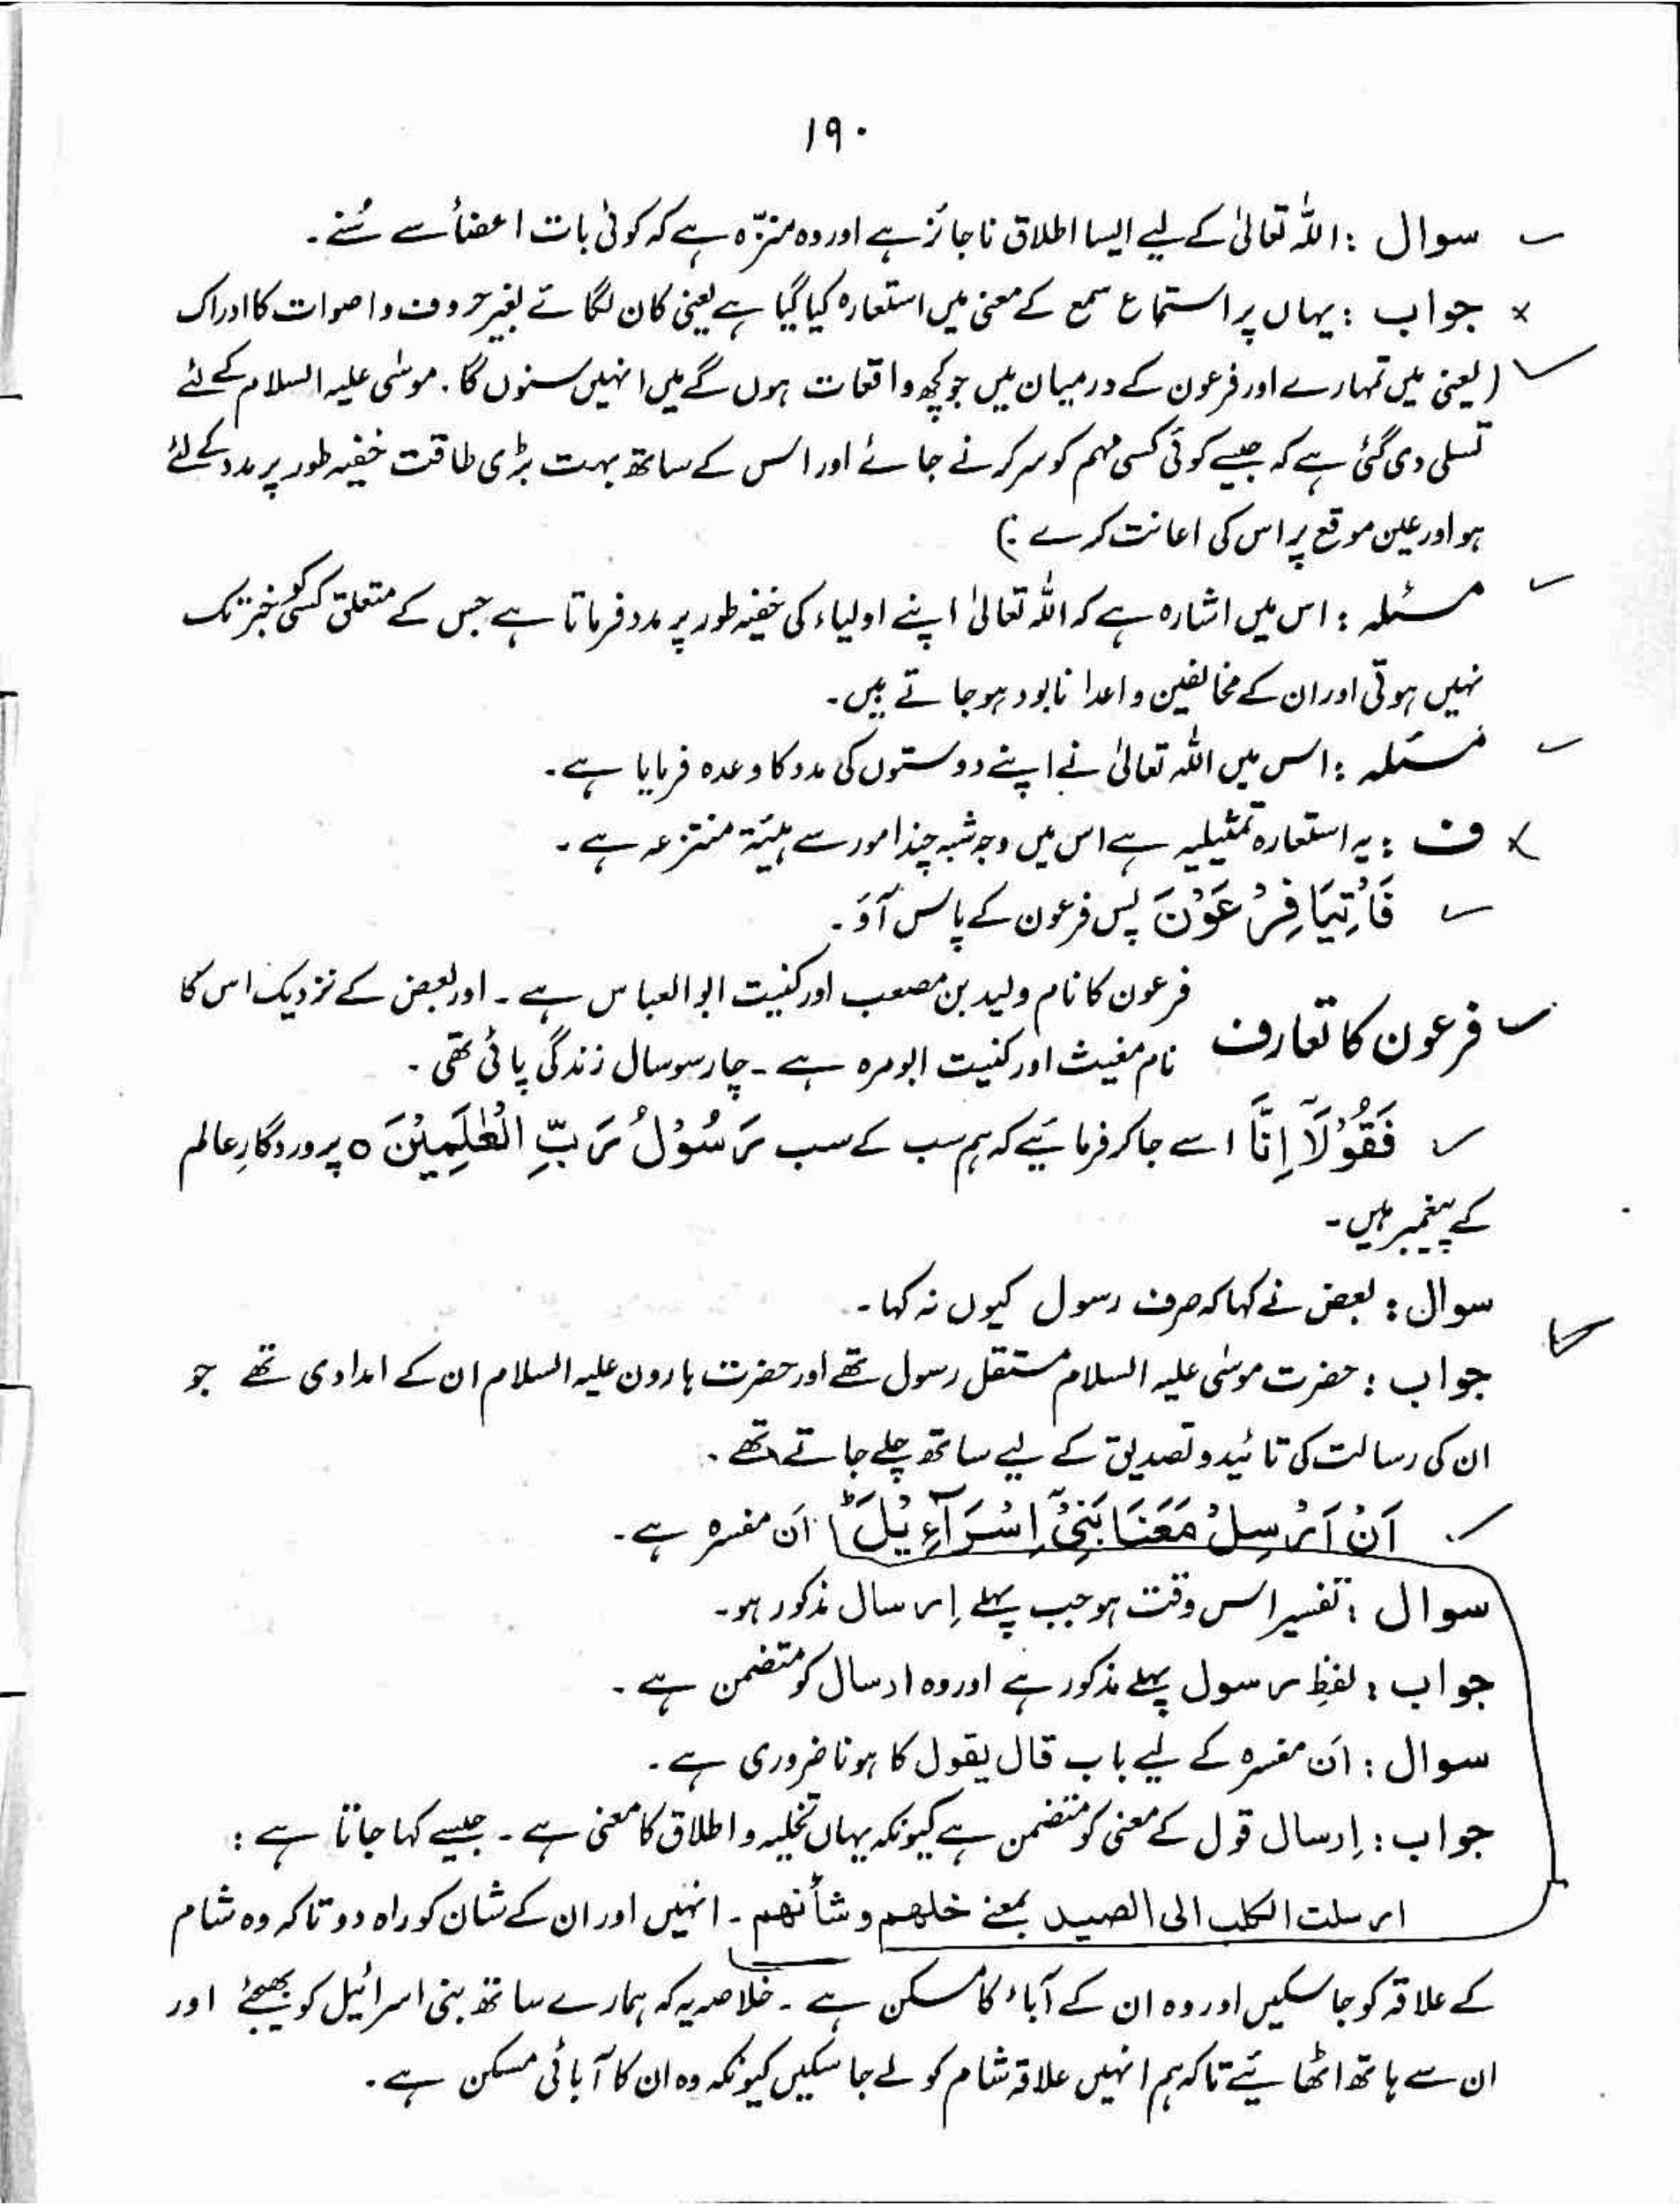 ۱۹۰
سوال : اللہ تعالیٰ کے لیے ایسا اطلاق ناجائز ہے اور وہ منزّہ ہے کہ کوئی بات اعضأ سے سُنے۔
جواب : یہاں پر استماع سمع کے معنی میں استعارہ کیا گیا ہے یعنی کان لگائے بغیر حروف و اصوات کا ادراک
(یعنی میں تمہارے اور فرعون کے درمیان میں جو کچھ واقعات ہوں گے میں انہیں سنوں گا۔ موسٰی علیہ السلام کے لئے
تسلی دی گئی ہے کہ جیسے کوئی کسی مہم کو سر کرنے جائے اور اس کے ساتھ بہت بڑی طاقت خفیہ طور پر مدد کے لئے
ہو اور عین موقع پر اس کی اعانت کرے ؛)
مسئلہ : اس میں اشارہ ہے کہ اللہ تعالیٰ اپنے اولیاء کی خفیہ طور پر مدد فرماتا ہے جس کے متعلق کسی کو خبر تک
نہیں ہوتی اور ان کے مخالفین و اعدا نابود ہو جاتے ہیں۔
مسئلہ : اس میں اللہ تعالیٰ نے اپنے دوستوں کی مدد کا وعدہ فرمایا ہے۔
ف : یہ استعارہ تمثیلیہ ہے اس میں وجہ شبہ چند امور سے ہیئۃ منتزعہ ہے۔
فَاْتِیَا فِرْعَوْنَ پس فرعون کے پاس آؤ۔
فرعون کا تعارف فرعون کا نام ولید بن مصعب اور کنیت ابو العباس ہے۔ اور بعض کے نزدیک اس کا
نام مغیث اور کنیت ابو مرہ ہے۔ چار سو سال زندگی پائی تھی۔
فَقُوْلَاۤ اِنَّا اسے جا کر فرمائیے کہ ہم سب کے سب رَسُوْلُ رَبِّ الْعٰلَمِیْنَ ○ پروردگارِ عالم
کے پیغمبر ہیں۔
سوال : بعض نے کہا کہ صرف رسول کیوں نہ کہا۔
جواب : حضرت موسٰی علیہ السلام مستقل رسول تھے اور حضرت ہارون علیہ السلام ان کے امدادی تھے جو
ان کی رسالت کی تائید و تصدیق کے لیے ساتھ چلے جاتے تھے۔
اَنْ اَرْسِلْ مَعَنَا بَنِیْۤ اِسْرَآءِیْلَ ؕ اَن مفسرہ ہے۔
سوال : تفسیر اس وقت ہو جب پہلے اِرسال مذکور ہو۔
جواب : لفظِ رسول پہلے مذکور ہے اور وہ ارسال کو متضمن ہے۔
سوال : اَن مفسرہ کے لیے باب قال یقول کا ہونا ضروری ہے۔
جواب : اِرسال قول کے معنی کو متضمن ہے کیونکہ یہاں تخلیہ و اطلاق کا معنی ہے۔ جیسے کہا جاتا ہے :
ارسلت الکلب الی الصید بمعنے خلھم و شأنھم۔ انہیں اور ان کے شان کو راہ دو تاکہ وہ شام
کے علاقہ کو جا سکیں اور وہ ان کے آباء کا مسکن ہے۔ خلاصہ یہ کہ ہمارے ساتھ بنی اسرائیل کو بھیجئے اور
ان سے ہاتھ اٹھائیے تاکہ ہم انہیں علاقہ شام کو لے جا سکیں کیونکہ وہ ان کا آبائی مسکن ہے۔